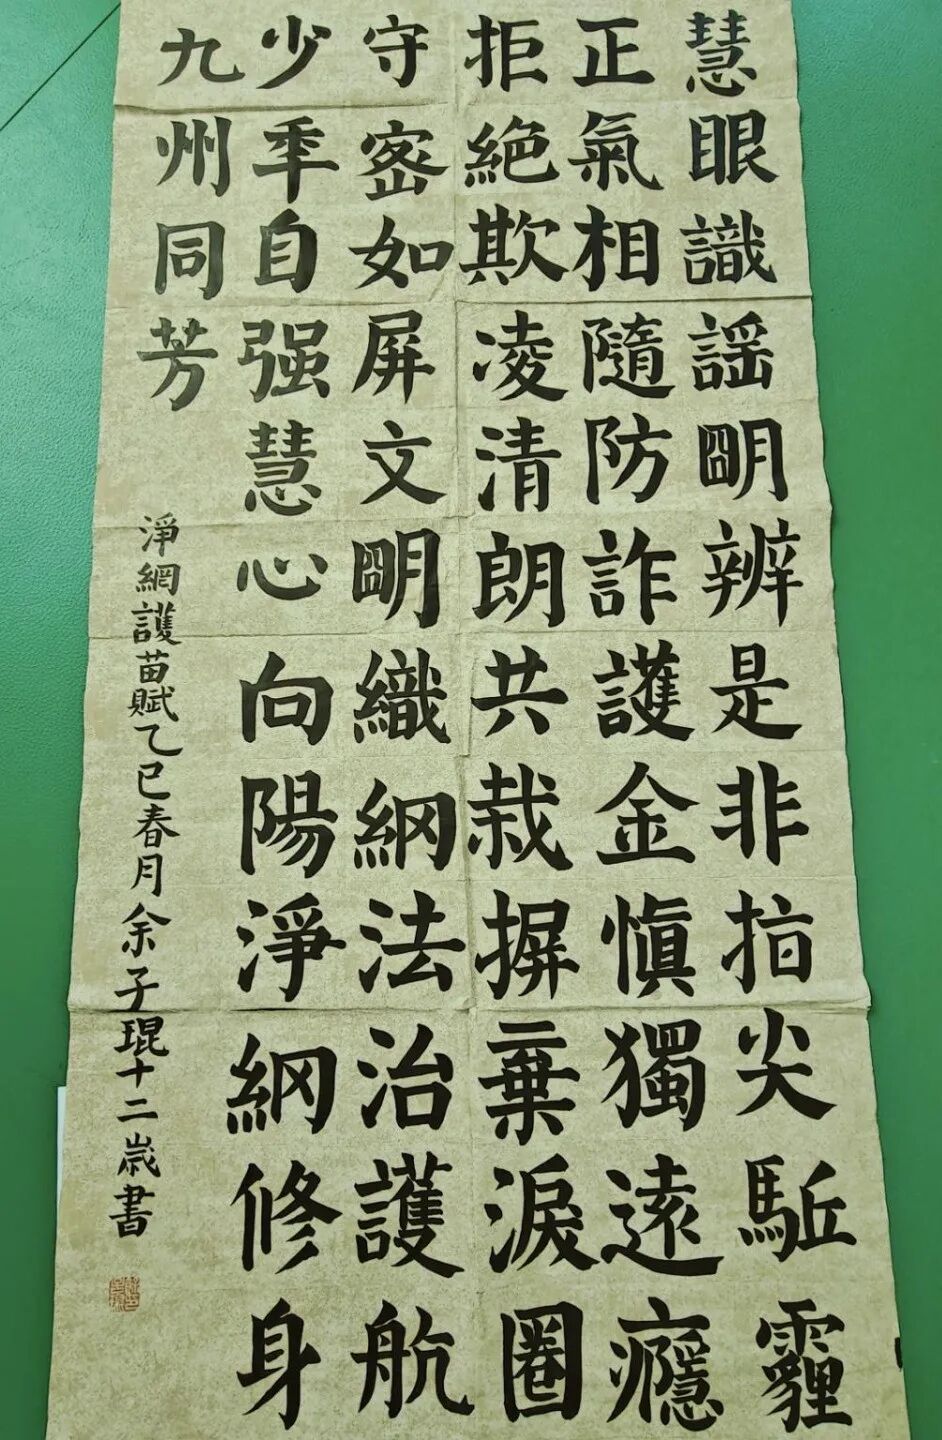 慧眼識謡明辨是非指尖駈霾
正氣相隨防詐護金慎獨遠癮
拒絶欺凌清朗共栽摒棄淚圈
守密如屏文明織網法治護航
少年自强慧心向陽淨網修身
九州同芳
淨網護苗賦乙巳春月余子琨十二歲書